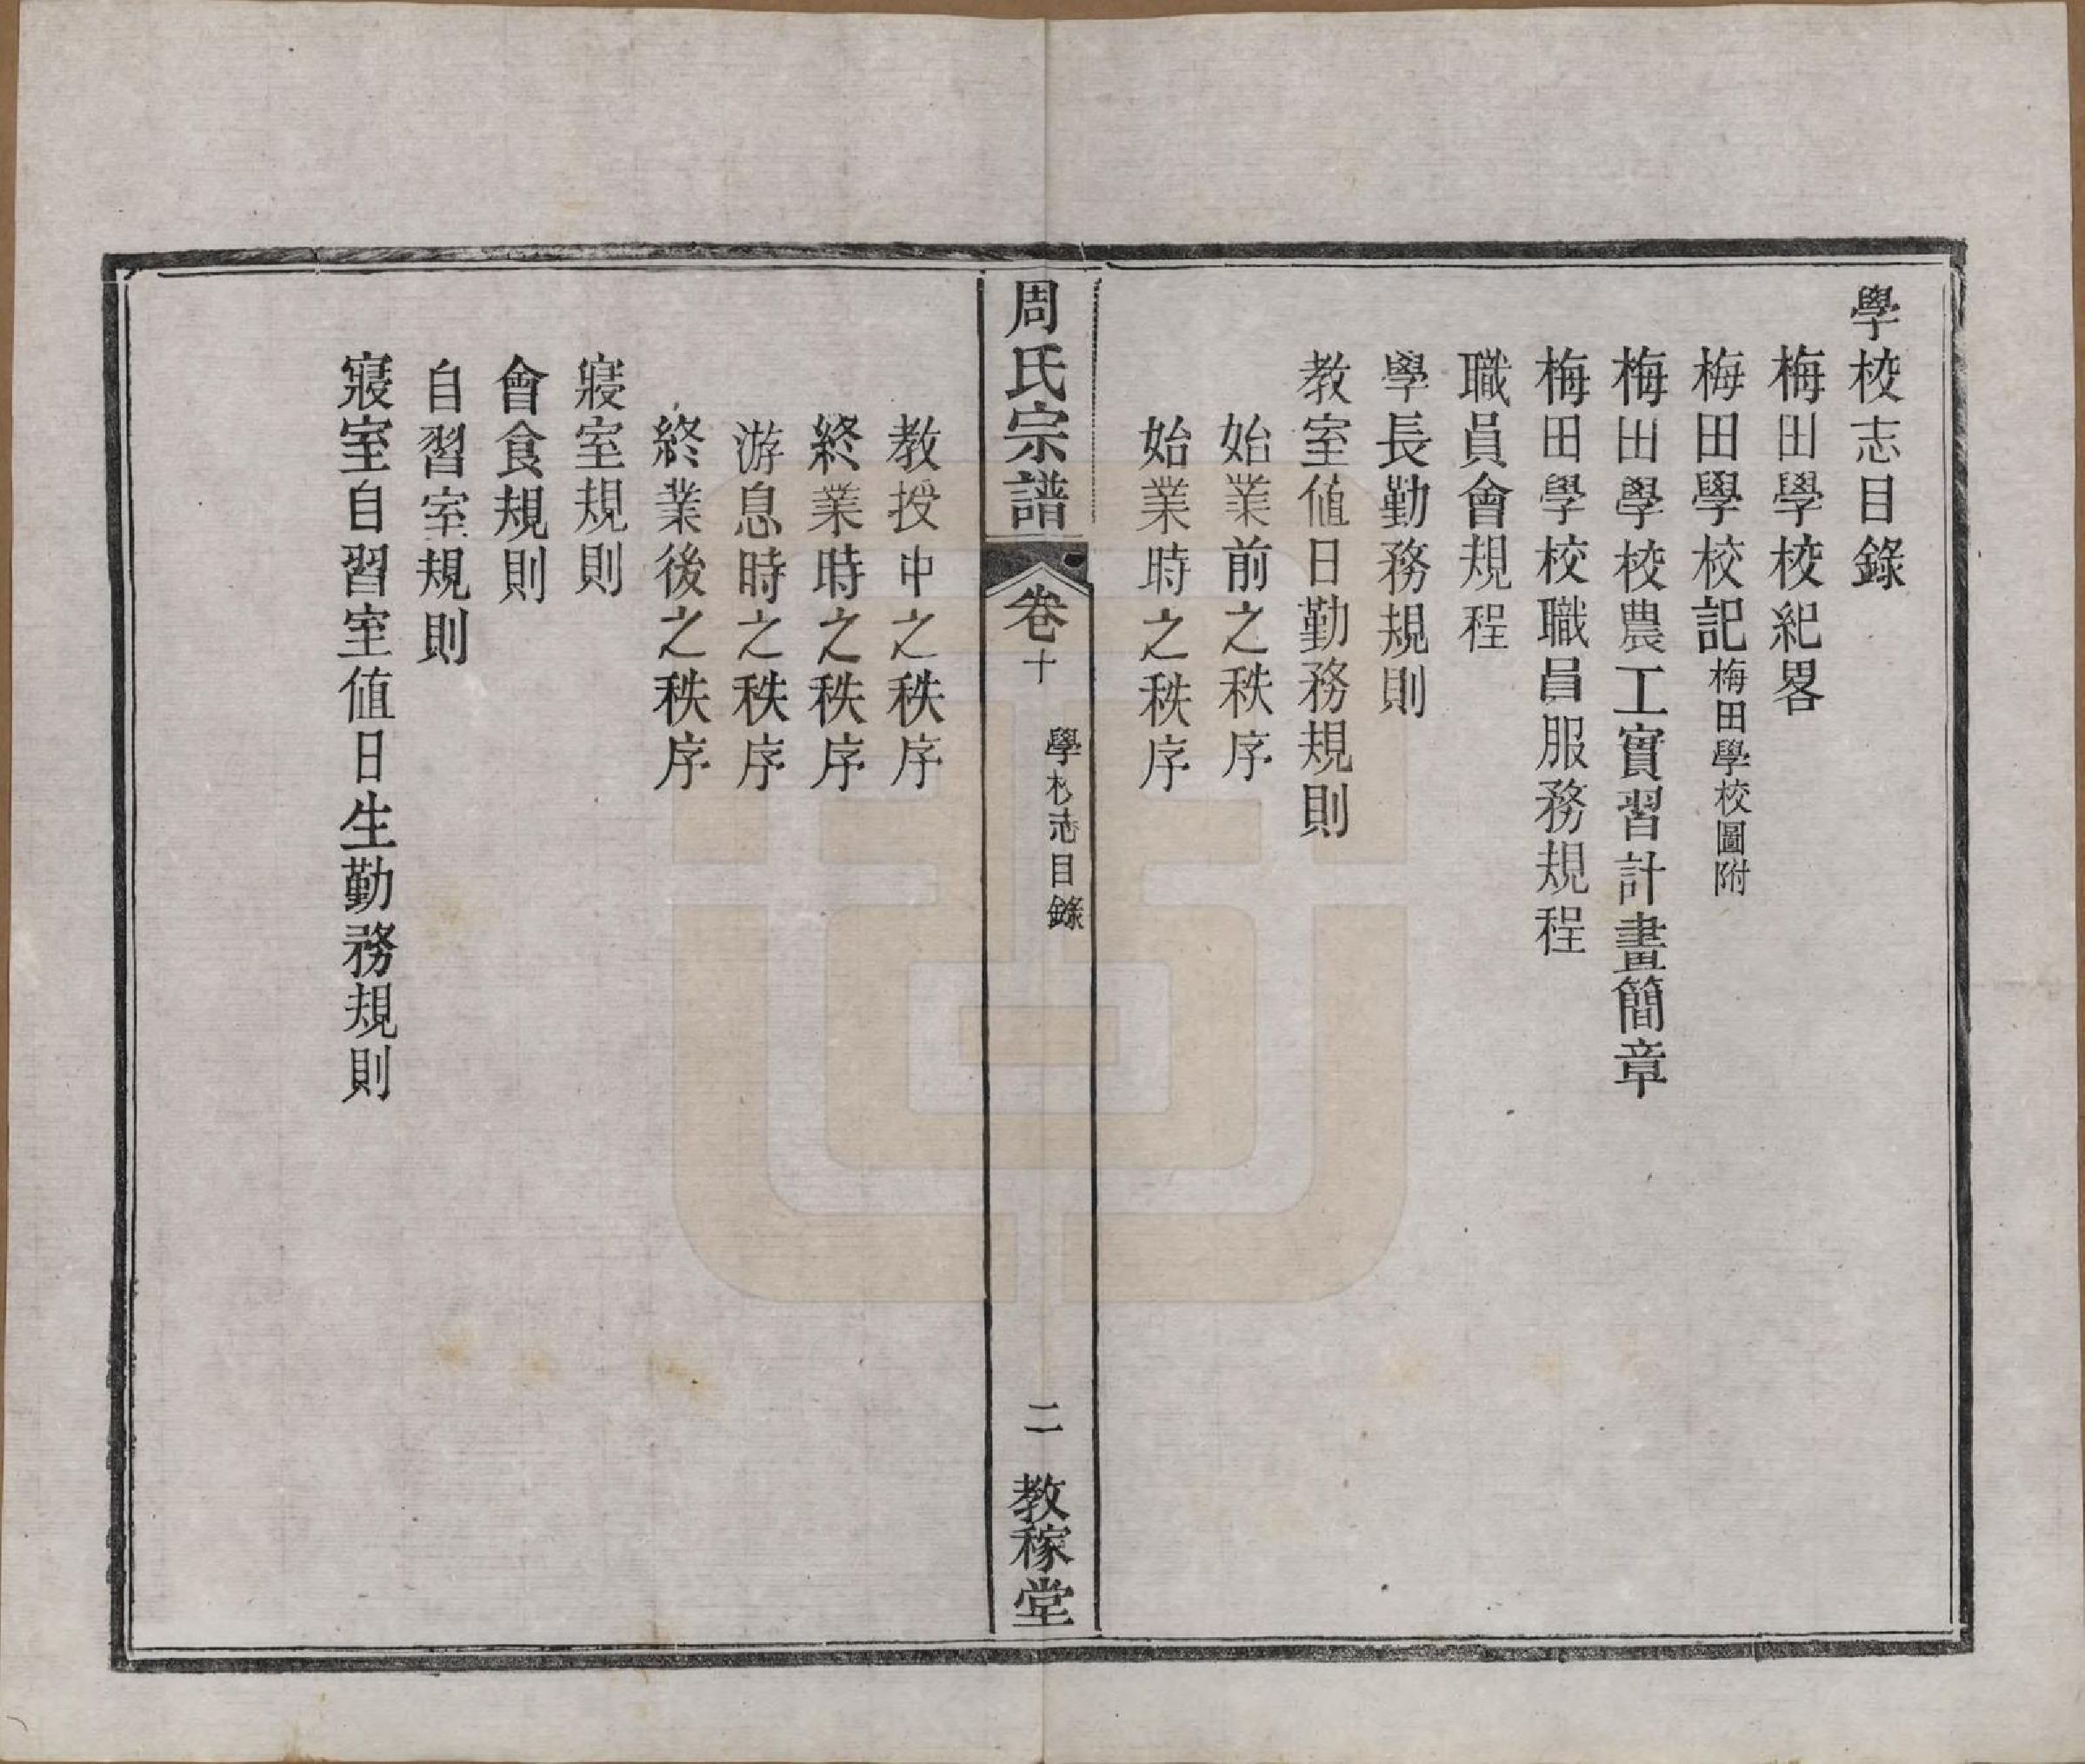 學校志目錄
梅田學校紀畧
梅田學校記梅田學校圖附
梅田學校農工實習計畫簡章
梅田學校職員服務規程
職員會規程
學長勤務規則
教室値日勤務規則
始業前之秩序
始業時之秩序
周氏宗譜
卷十
學校志目錄
二
教稼堂
教授中之秩序
終業時之秩序
游息時之秩序
終業後之秩序
寢室規則
會食規則
自習室規則
寢室自習室値日生勤務規則